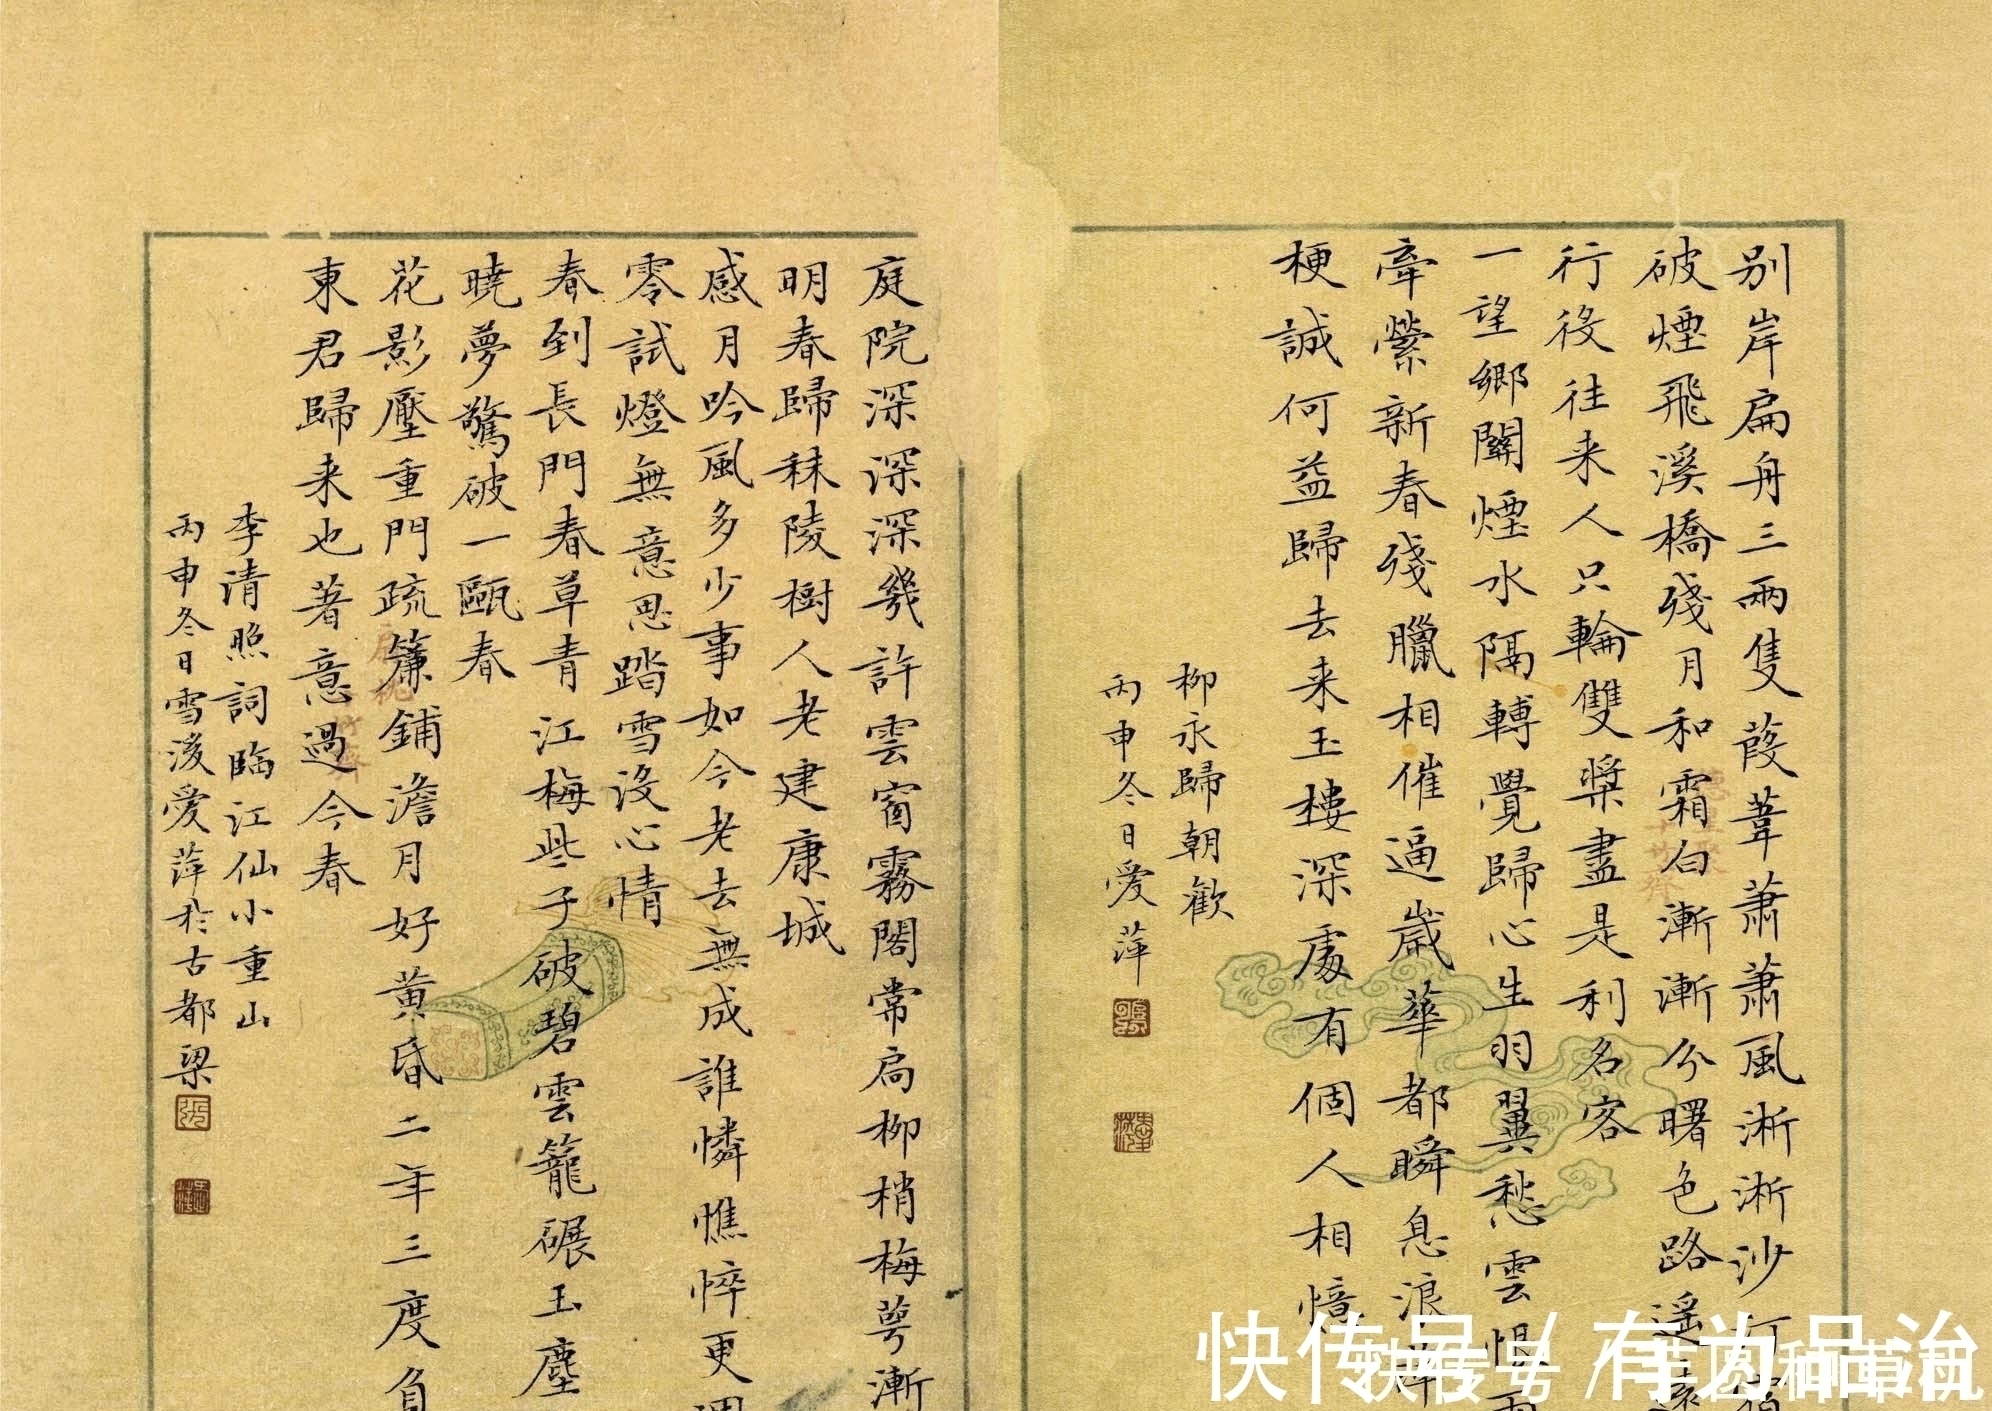 别岸扁舟三兩隻葭葦蕭蕭風淅淅沙汀宿
破煙飛溪橋殘月和霜白漸漸分曙色路遥遠
行役往来人只輪雙槳盡是利名客
一望鄉關煙水隔轉覺歸心生羽翼愁雲恨雨
牽縈新春殘臘相催逼歲華都瞬息浪萍
梗誠何益歸去来玉樓深處有個人相憶
柳永歸朝歡
丙申冬日愛萍
庭院深深深幾許雲窗霧閣常扃柳梢梅萼漸
明春歸秣陵樹人老建康城
感月吟風多少事如今老去無成誰憐憔悴更凋
零試燈無意思踏雪沒心情
春到長門春草青江梅些子破碧雲籠碾玉塵
曉夢驚破一甌春
花影壓重門疏簾鋪澹月好黄昏二年三度負
東君歸来也著意過今春
李清照詞臨江仙小重山
丙申冬日雪後愛萍於古都梁
快传号/有为品治